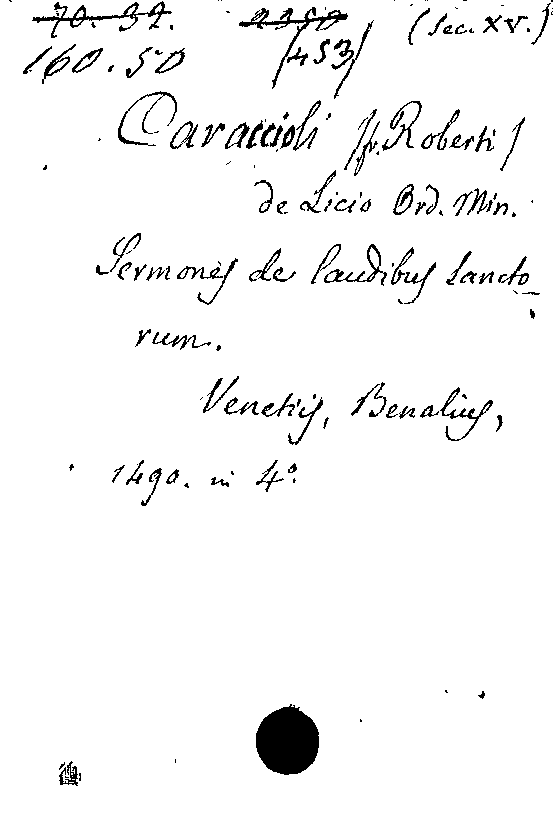 70. 32. 2350 (Sec. XV.)
160.50 (453)
Caraccioli (fr. Roberti)
de Licio Ord. Min.
Sermones de laudibus Sancto-
rum.
Venetiis, Benalius,
1490. in 4°.